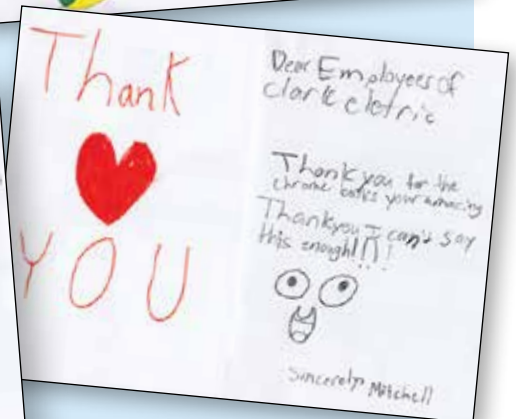 Thank
YOU
Dear Employees of
clark eletric
Thank you for the
chrome books your amazing
Thankyou I can't say
this enough!!!
Sincerely, Mitchell